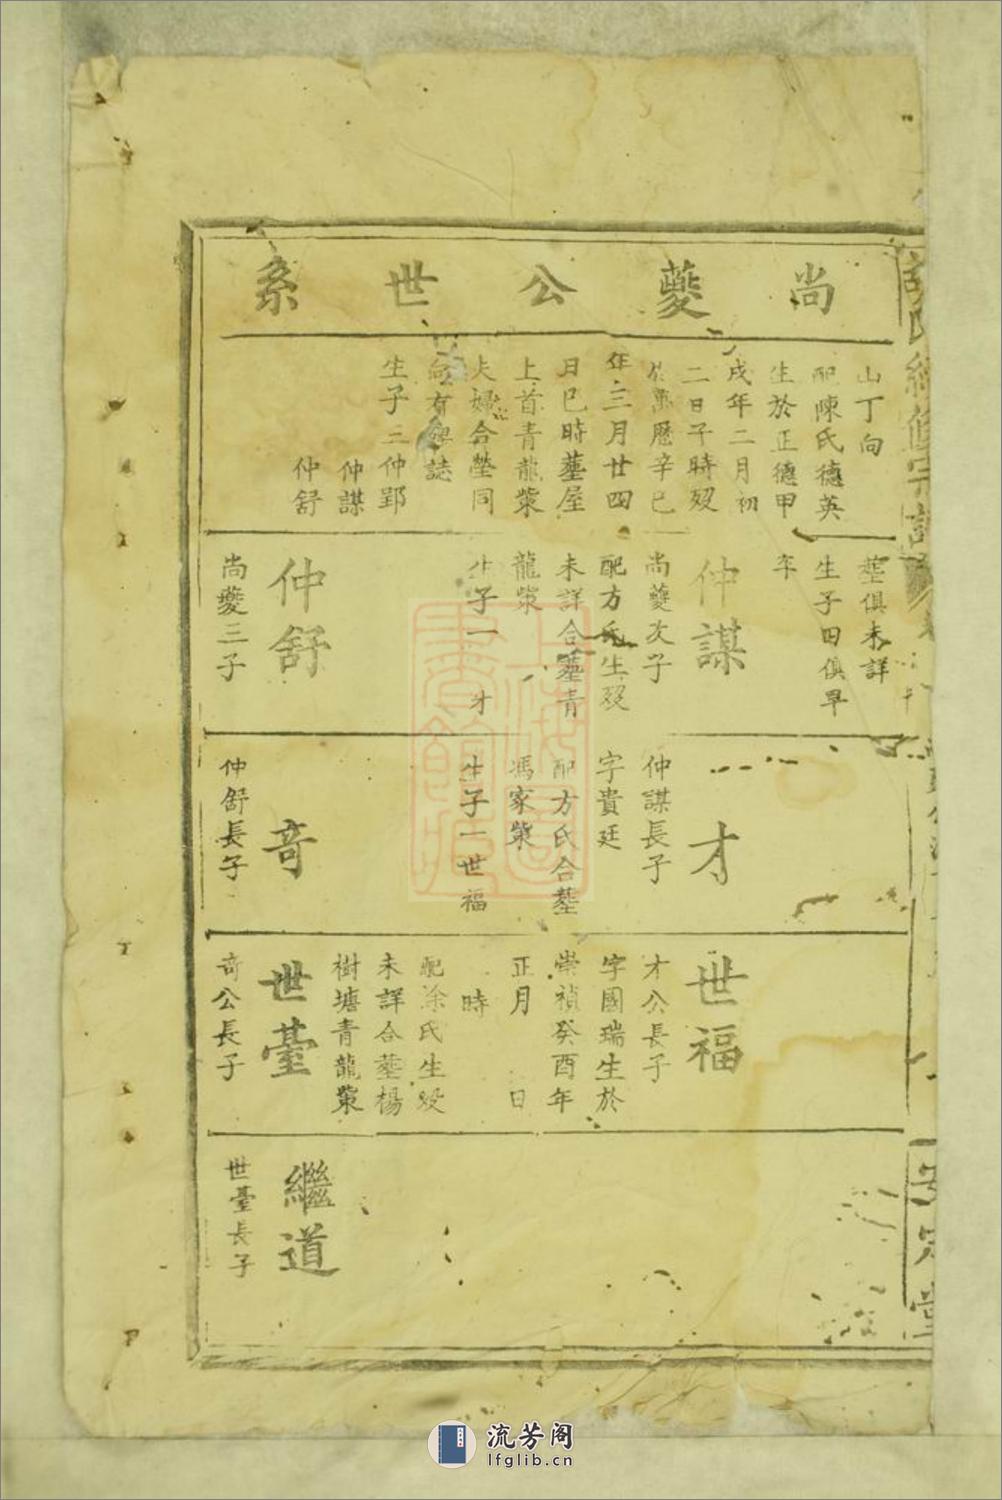 尚夔公世系
山丁向
配陳氏德英
生於正德甲
戌年二月初
二日子時殁
於萬曆辛巳
年三月廿四
日巳時墓屋
上首青龍 
夫婦合塋同
向有碑誌
生子三仲郢
仲謀
仲舒
墓俱未詳
生子田俱早
卒
仲謀
尚夔次子
配方氏生殁
未詳合墓青
龍
生子一 才
仲舒
尚夔三子
才
仲謀長子
字貴廷
配方氏合墓
馮家
生子一世福
奇
仲舒長子
世福
才公長子
字國瑞生於
崇禎癸酉年
正月 日
時
配涂氏生殁
未詳合墓楊
樹塘青龍
世臺
奇公長子
繼道
世臺長子
安定堂
上海圖書館藏
流芳阁
lfglib.cn